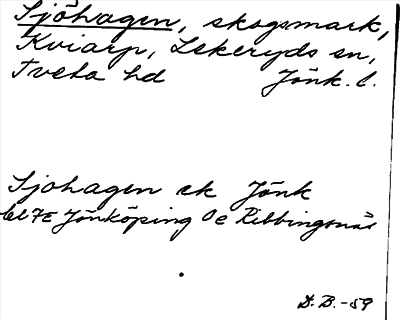 Sjöhagen, skogsmark,
Kviarp, Lekeryds sn,
Tveta hd Jönk. l.
Sjöhagen ek Jönk
bl 7E Jönköping 0e Ribbingsnäs
D.B.-59